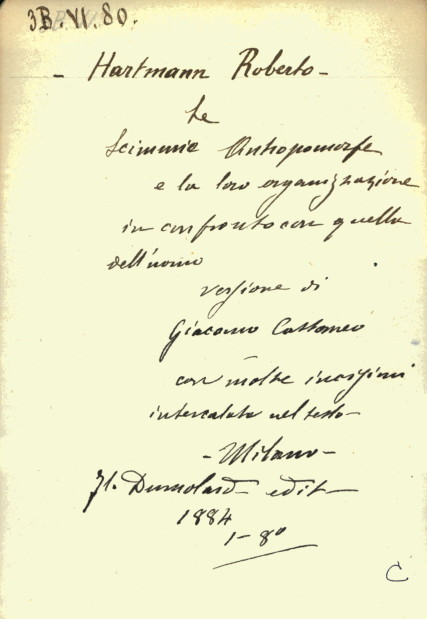 3B.VI.80.
- Hartmann Roberto -
Le
Scimmie Antropomorfe
e la loro organizzazione
in confronto con quella
dell'uomo
versione di
Giacomo Cattaneo
con molte incisioni
intercalate nel testo
- Milano -
Fl. Dumolard edit
1884
1- 8º
C